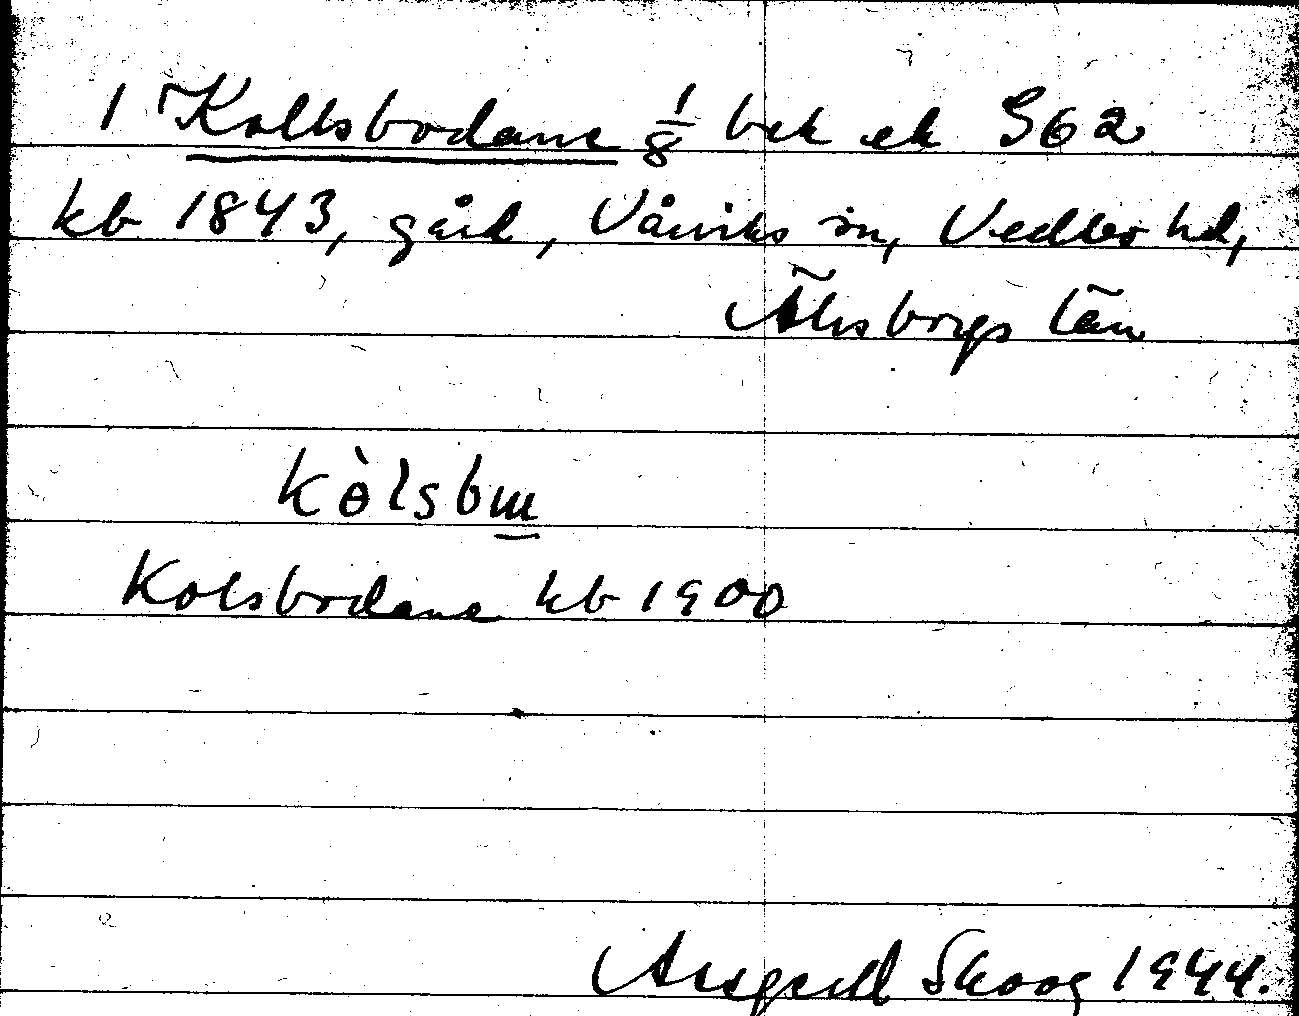 1 Kollsbodane 1/8 bek ek S62
kb 1843, gård, Vårviks sn, Vedbo hd,
Älvsborgs län
kòlsbm
Kolsbodane kb 1900
Skoog 1944.